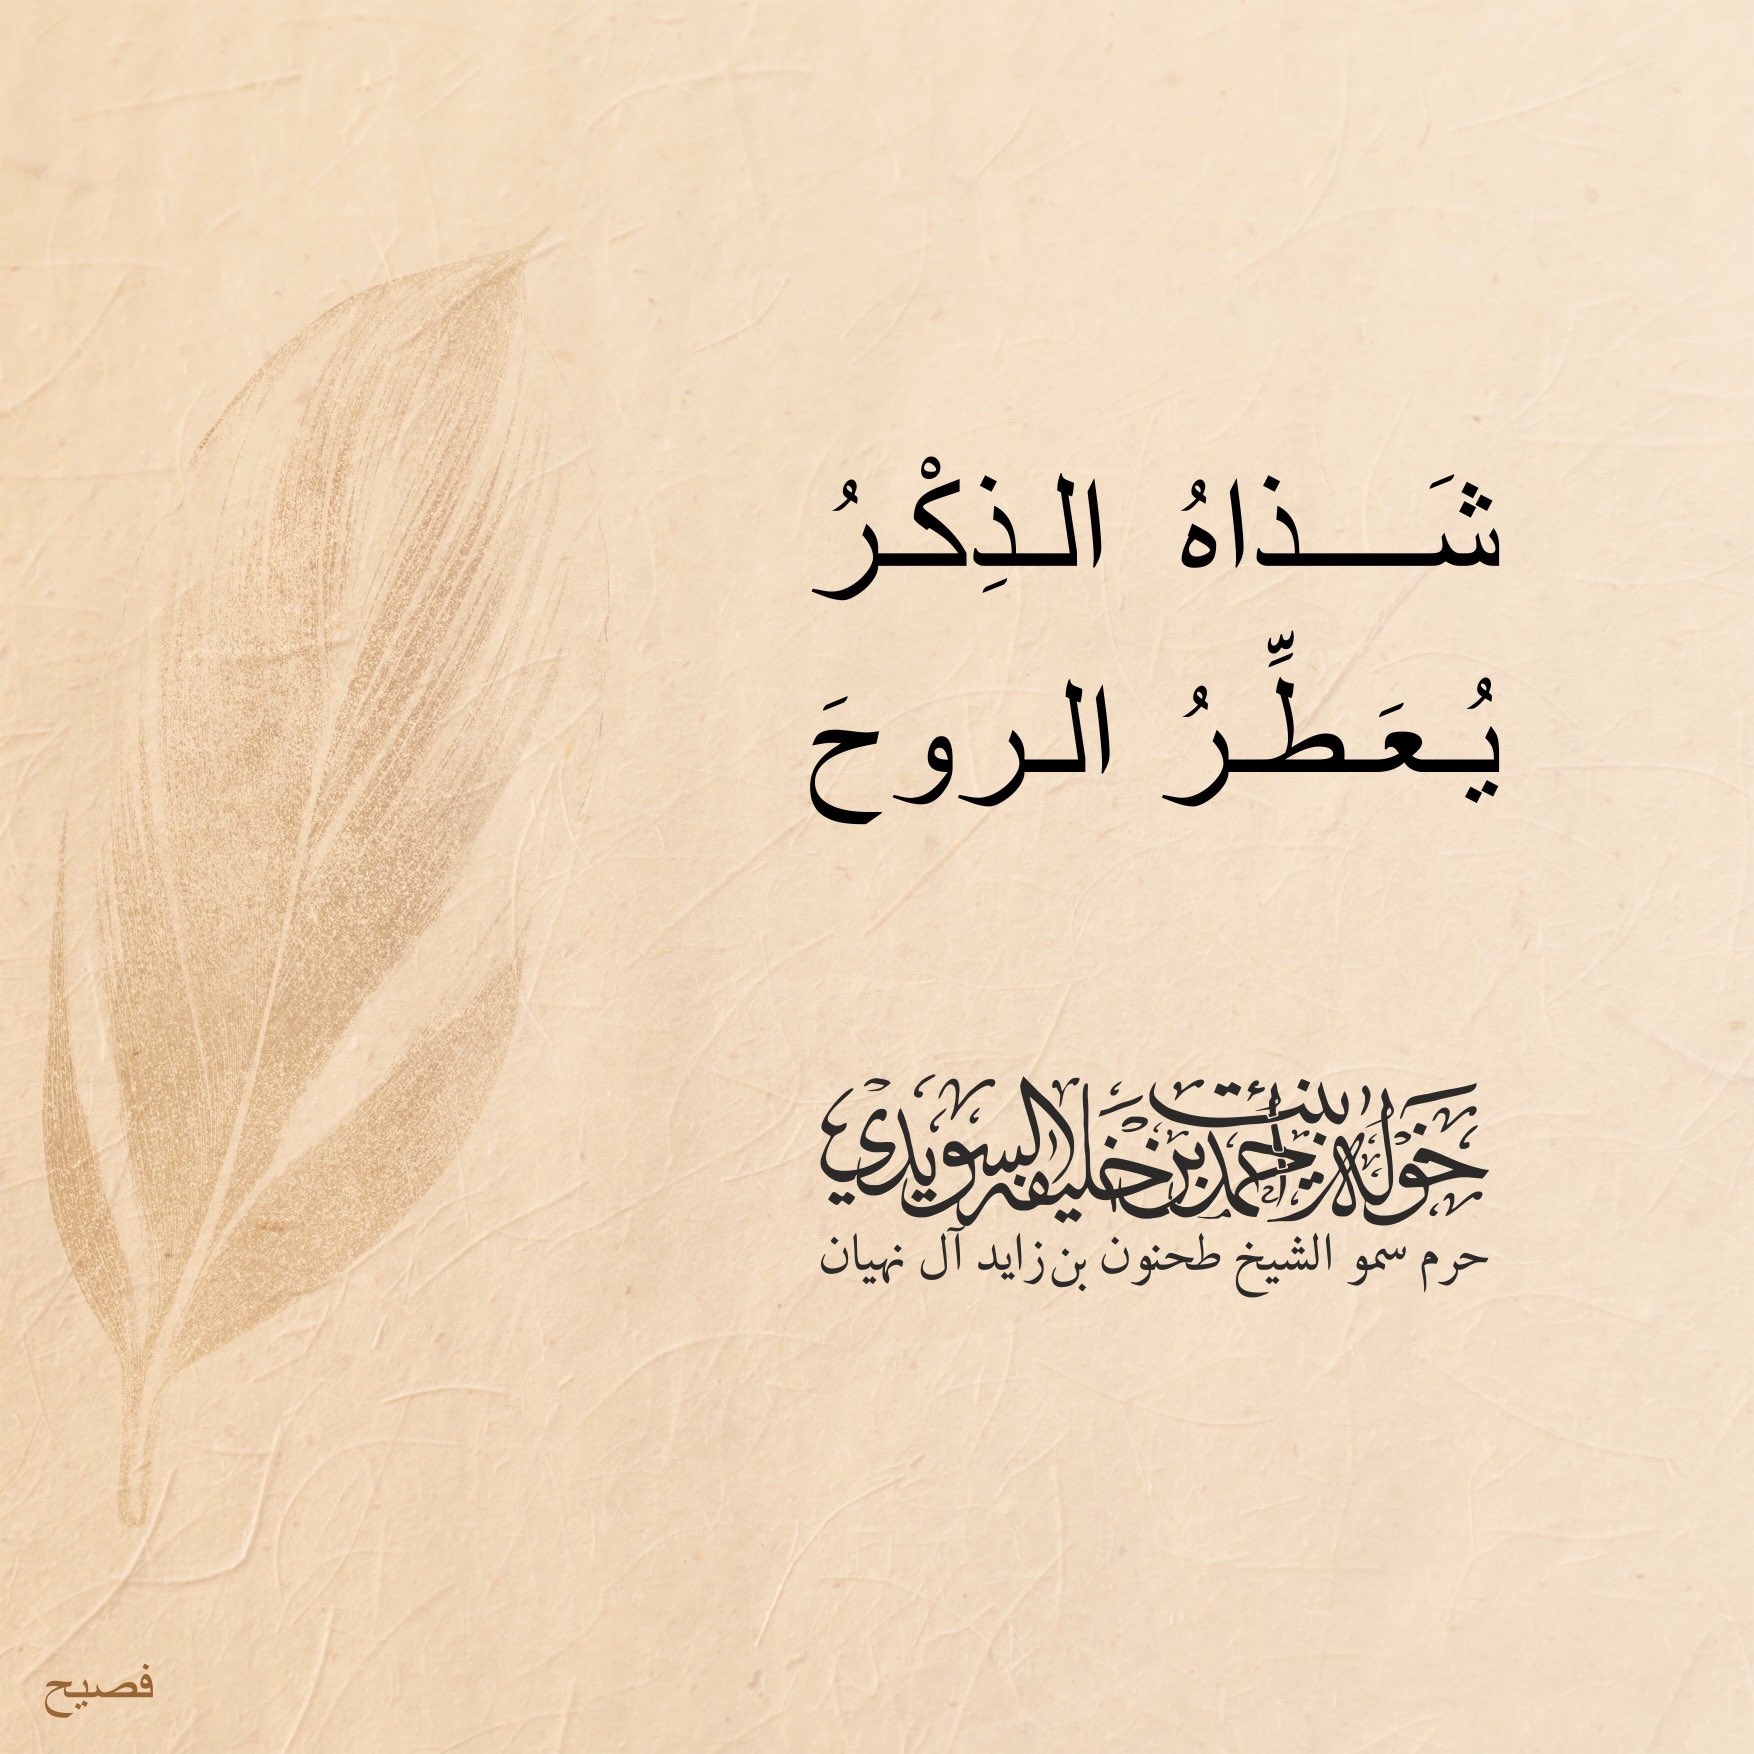 شَذاهُ الذِكْرُ
يُعَطِّرُ الروحَ
خولة بنت أحمد بن خليفة السويدي
حرم سمو الشيخ طحنون بن زايد آل نهيان
فصيح